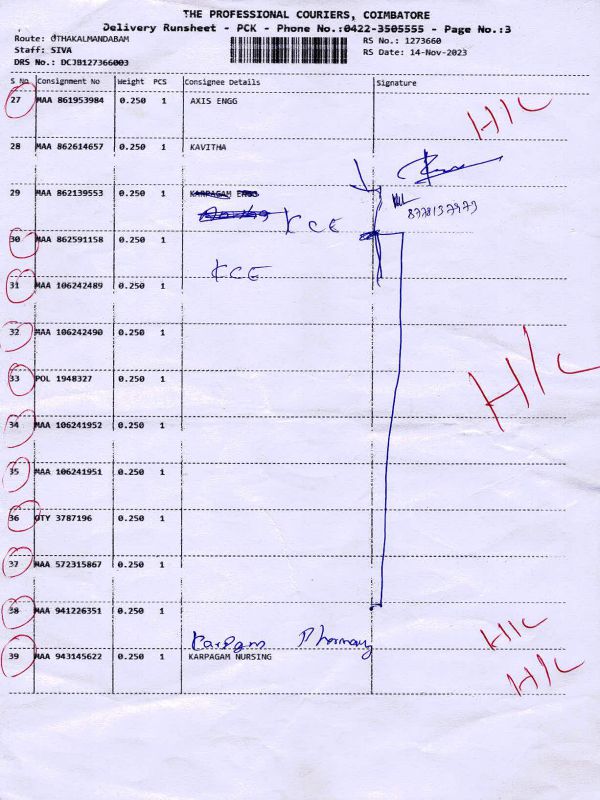 THE PROFESSIONAL COURIERS, COIMBATORE
Delivery Runsheet - PCK - Phone No.:0422-3505555 - Page No.:3
Route: OTHAKALMANDABAM
RS No.: 1273660
Staff: SIVA
RS Date: 14-Nov-2023
DRS No.: DCJB127366003
S No Consignment No Weight PCS Consignee Details Signature
27 MAA 861953984 0.250 1 AXIS ENGG H/C
28 MAA 862614657 0.250 1 KAVITHA
29 MAA 862139553 0.250 1 KARPAGAM ENGG
KCE
30 MAA 862591158 0.250 1
KCE
31 MAA 106242489 0.250 1
32 MAA 106242490 0.250 1
33 POL 1948327 0.250 1 H/C
34 MAA 106241952 0.250 1
35 MAA 106241951 0.250 1
36 OTY 3787196 0.250 1
37 MAA 572315867 0.250 1
38 MAA 941226351 0.250 1
Karpgam Pharmacy H/C
39 MAA 943145622 0.250 1 KARPAGAM NURSING H/C